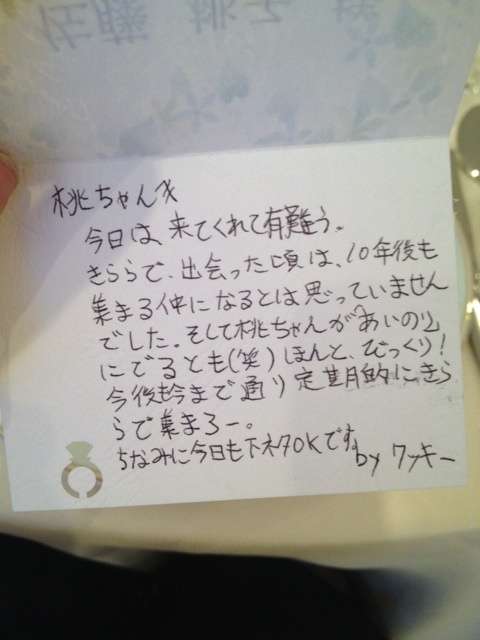 佐藤 桃子 様
桃ちゃんへ
今日は、来てくれて有難う。
きららで、出会った頃は、10年後も
集まる仲になるとは思っていません
でした。そして桃ちゃんが「あいのり」
にでるとも(笑)ほんと、びっくり!
今後も今まで通り定期的にきら
らで集まろー。
ちなみに今日も下ネタOKです。
by ワッキー